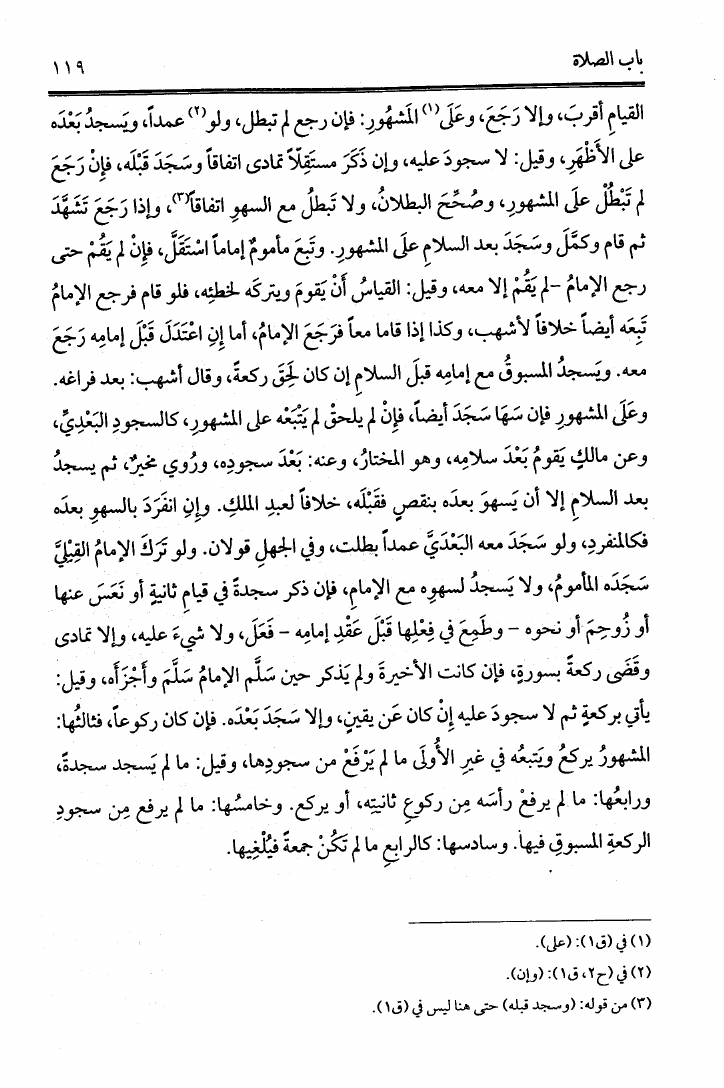 باب الصلاة ١١٩
القيامِ أقربَ، وإلا رَجَعَ، وعَلَى(١) المَشهُورِ: فإن رجع لم تبطل، ولو(٢) عمداً، ويَسجدُ بَعْدَه
على الأَظْهَرِ، وقيل: لا سجودَ عليه، وإن ذَكَرَ مستَقِلّاً تمادى اتفاقاً وسَجَدَ قَبْلَه، فإنْ رَجَعَ
لم تَبْطُلْ علَى المشهورِ، وصُحِّحَ البطلانُ، ولا تَبطلُ مع السهوِ اتفاقاً(٣)، وإذا رَجَعَ تَشَهَّدَ
ثم قام وكمَّلَ وسَجَدَ بعد السلامِ علَى المشهورِ. وتَبِعَ مأمومٌ إماماً اسْتَقَلَّ، فإنْ لم يَقُمْ حتى
رجع الإمامُ -لم يَقُمْ إلا معه، وقيل: القياسُ أَنْ يَقومَ ويتركَه لخطئِه، فلو قام فرجع الإمامُ
تَبِعَه أيضاً خلافاً لأشهب، وكذا إذا قاما معاً فرَجَعَ الإمامُ، أما إنِ اعْتَدَلَ قَبْلَ إمامِه رَجَعَ
معه. ويَسجدُ المسبوقُ مع إمامِه قبلَ السلامِ إن كان لَحِقَ ركعةً، وقال أشهب: بعد فراغه.
وعَلَى المشهورِ فإن سَهَا سَجَدَ أيضاً، فإنْ لم يلحقْ لم يَتْبَعْه على المشهورِ، كالسجودِ البَعْدِيِّ،
وعن مالكٍ يَقومُ بَعْدَ سلامِه، وهو المختارُ، وعنه: بَعْدَ سجودِه، ورُوي مخيرٌ، ثم يسجدُ
بعد السلامِ إلا أن يَسهوَ بعدَه بنقصٍ فقَبْلَه، خلافاً لعبدِ الملكِ. وإنِ انفَرَدَ بالسهوِ بعده
فكالمنفردِ، ولو سَجَدَ معه البَعْدَيَّ عمداً بطلت، وفي الجهلِ قولان. ولو تَرَكَ الإمامُ القِبْلِيَّ
سَجَدَه المأمومُ، ولا يَسجدُ لسهوِه مع الإمامِ، فإن ذكر سجدةً في قيامِ ثانيةٍ أو نَعَسَ عنها
أو زُوحِمَ أو نحوه - وطَمِعَ في فِعْلِها قَبْلَ عَقْدِ إمامِه - فَعَلَ، ولا شيءَ عليه، وإلا تمادى
وقَضَى ركعةً بسورةٍ، فإن كانت الأخيرةَ ولم يَذكر حين سَلَّم الإمامُ سَلَّمَ وأَجْزَأَه، وقيل:
يأتي بركعةٍ ثم لا سجودَ عليه إنْ كان عَن يقينٍ، وإلا سَجَدَ بَعْدَه. فإن كان ركوعاً، فثالثُها:
المشهورُ يركعُ ويَتبعُه في غيرِ الأُولَى ما لم يَرْفَعْ من سجودِها، وقيل: ما لم يَسجد سجدةً،
ورابعُها: ما لم يرفعْ رأسَه مِن ركوعِ ثانيتِه، أو يركع. وخامسُها: ما لم يرفع مِن سجودِ
الركعةِ المسبوقِ فيها. وسادسها: كالرابعِ ما لم تَكُنْ جمعةً فيُلْغِيها.
(١) في (ق١): (على).
(٢) في (ح٢، ق١): (وإن).
(٣) من قوله: (وسجد قبله) حتى هنا ليس في (ق١).